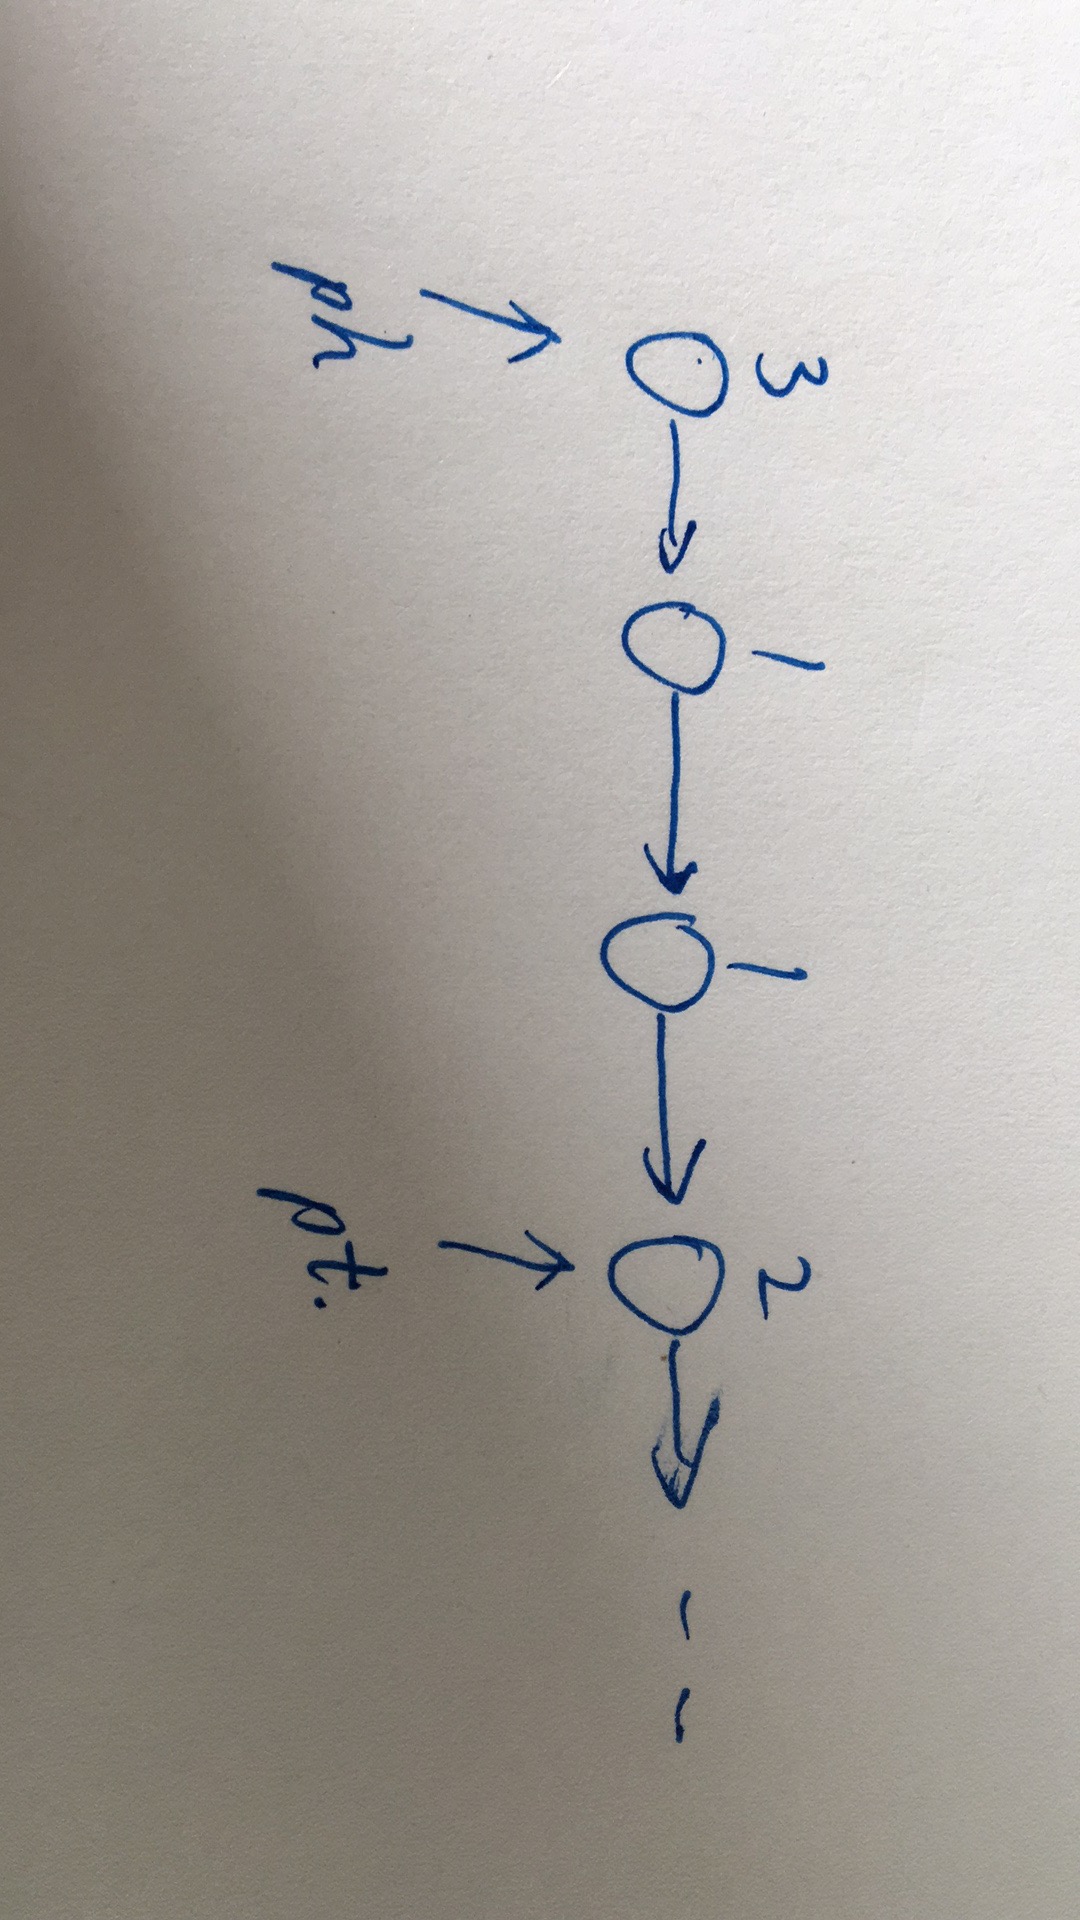 3 1 1 2
ph pt.